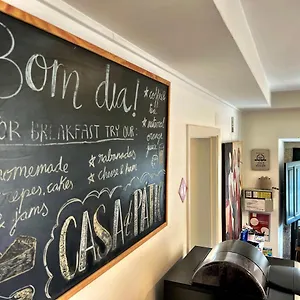 Bom dia!
FOR BREAKFAST TRY OUR:
homemade
crepes, cakes
& jams
* rabanadas
* cheese & ham
* coffee
& tea
* natural
orange
juice
CASA PATI